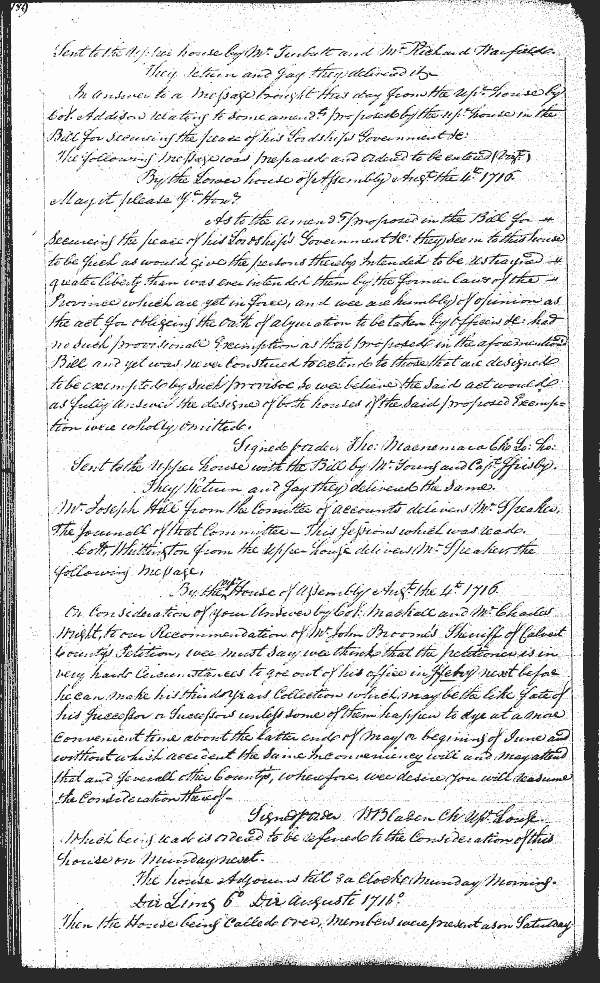 Sent to the upper house by Mr and Mr Richard Warfield.
They return and say they delivered it
In answer to a Message brought this day from the upr. house by
Col. Addison relating to some amendts. proposed by the upr. house in the
Bill for secureing the peace of his Lordships Government &c:
The following message was prepared and ordered to be entered
By the Lower house of Assembly Augt. the 4th 1716
May it please yr. Honrs.
As to the amendts. proposed in the Bill for
Secureing the peace of his Lordship's Government &c: they seem to this house
to be such as would give the persons thereby Intended to be restrayned
greater liberty than was ever intended them by the former laws of this
Province which are yet in force, and wee are humbly of opinion as
the act for obligeing the Oath of abjuration to be taken by Officers &c: had
no such provisionall Exemption as that proposed in the aforementioned
Bill and yet was never construed to extend to those that are designed
to be exempted by such provisoe so wee believe the said act would
as fully answer the designe of both houses if the said proposed Exemp=
tion were wholly omitted.
Signed p order, Tho: Macnemara Clk Lo: ho:
Sent to the upper house with the Bill by Mr. Young and Capt. Ffrisby.
They Return and say they delivered the same.
Mr. Joseph Hill from the Comittee of accounts delivers Mr. Speaker,
The Journall of that Committee This Sessions which was read.
Coll. Whittington from the upper house delivers Mr. Speaker the
following message.
By the upr. House of assembly Augt. the 4th 1716
On Consideration of your Answer by Col. Mackall and Mr. Charles
Wright, to our Recommendation of Mr. John Broome's Sheriff of Calvert
County Petition, wee must say wee think that the petitioner is in
very hard Circumstances to goe out of his office in ffebry next before
he can make his third years Collection which may be the like fate of
his successor or successors unless some of them happen to dye at a more
convenient time about the latter end of may or begining of June and
without which accident the same Inconveniency will and may attend
that and severall other Countys, wherefore, wee desire you will reasume
the Consideration thereof
Signed p order W Bladen Ch upr. house
Which being read is ordered to be referred to the Consideration of this
house on Munday next.
The house Adjourns till 8 a Clocke Munday Morning.
Die Lunæ 6o Die Augusti 1716o
Then the House being Called over, Members were present as on Saturday